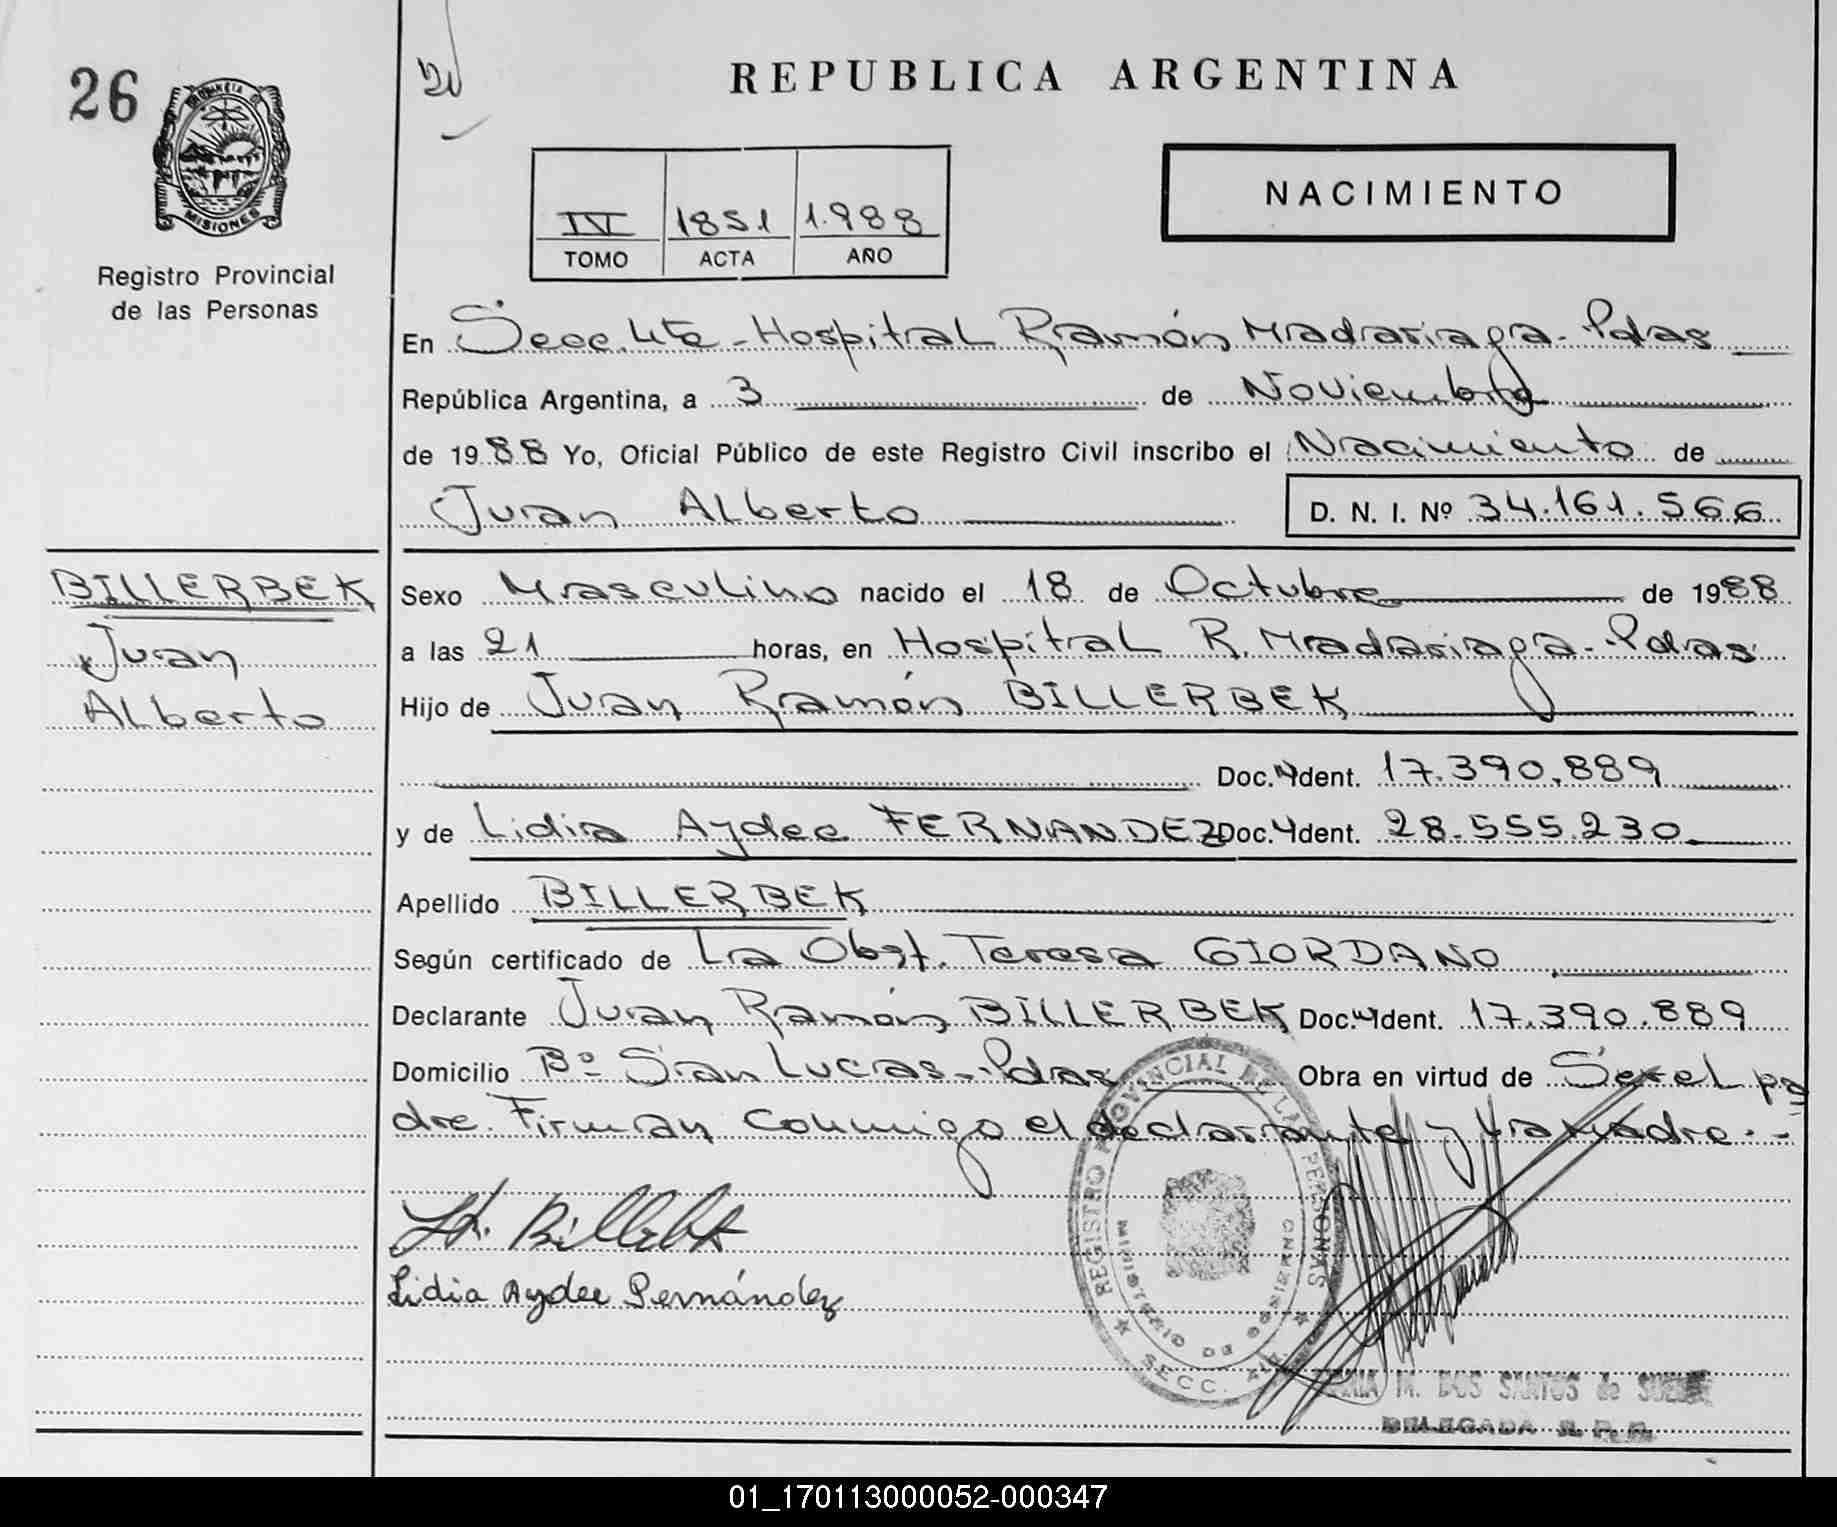 26
REPUBLICA ARGENTINA
PROVINCIA DE
MISIONES
Registro Provincial
de las Personas
NACIMIENTO
IV 1851 1.988
TOMO ACTA AÑO
En Secc. 4ta - Hospital Ramón Madariaga - Pdas
República Argentina, a 3 de Noviembre
de 1988 Yo, Oficial Público de este Registro Civil inscribo el Nacimiento de
Juan Alberto D. N. I. Nº 34.161.566
BILLERBEK
Juan
Alberto
Sexo Masculino nacido el 18 de Octubre de 1988
a las 21 horas, en Hospital R. Madariaga - Pdas
Hijo de Juan Ramón BILLERBEK
Doc. Ident. 17.390.889
y de Lidia Aydee FERNANDEZ Doc. Ident. 28.555.230
Apellido BILLERBEK
Según certificado de La Obst. Teresa GIORDANO
Declarante Juan Ramón BILLERBEK Doc. Ident. 17.390.889
Domicilio Bº San Lucas - Pdas Obra en virtud de Ser el pa
dre. Firman conmigo el declarante y la madre. -
Lidia Aydee Fernández
REGISTRO PROVINCIAL DE LAS PERSONAS
MINISTERIO DE GOBIERNO
SECC. 4ta
M. DOS SANTOS de
DELEGADA R. P. P.
01_170113000052-000347